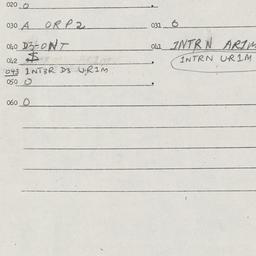 020 0
030 A ORP2 031 0
040 D3-ONT 041 INTRN AR1M
042 $ INTRN UR1M
043 INT3R D3 UR1M
050 0
060 0